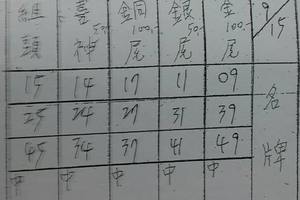 9/15
金尾 100
銀尾 50
銅尾 100
喜神 50
組頭
名牌
09 11 17 14 15
39 31 27 24 25
49 41 37 34 45
中 中 中 中 中